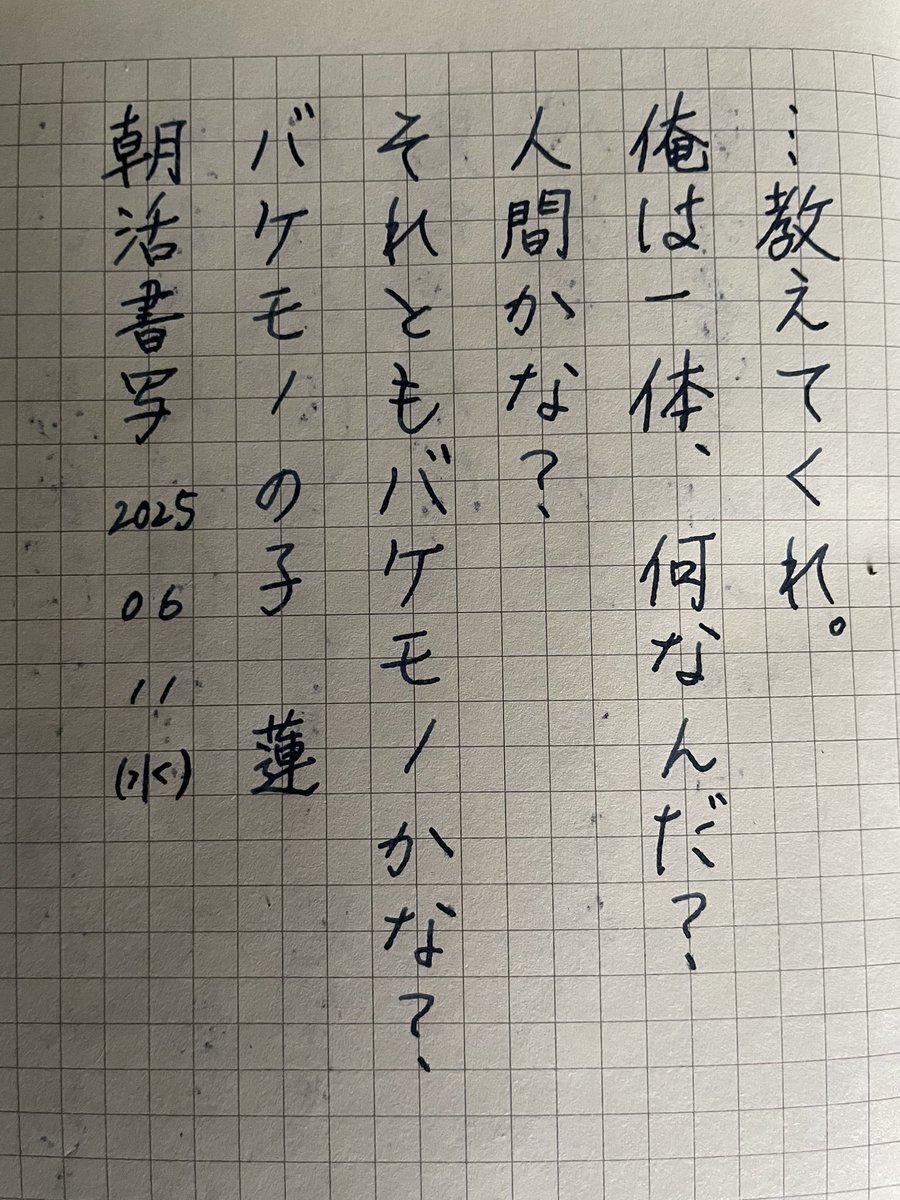 …教えてくれ。
俺は一体、何なんだ?
人間かな?
それともバケモノかな?
バケモノの子 蓮
朝活書写 2025 06 11 (水)